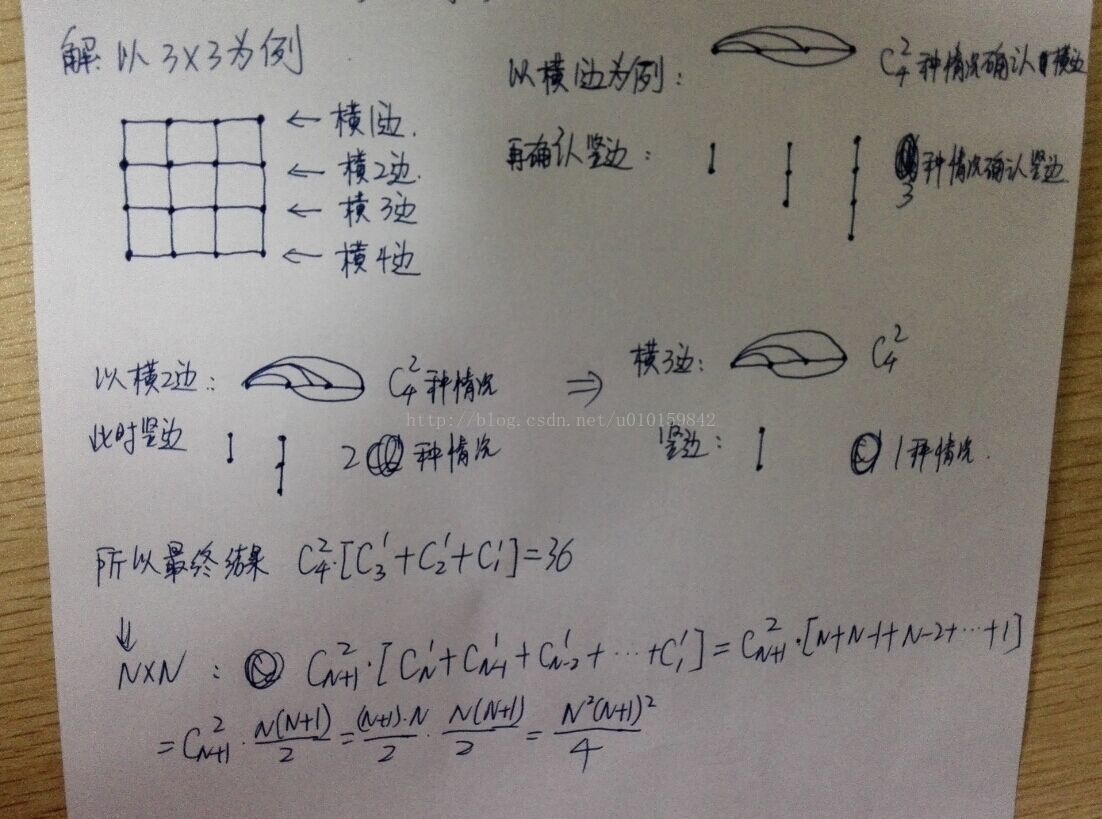 解: 以3×3为例
← 横1边.
← 横2边.
← 横3边
← 横4边
以横1边为例: C₄² 种情况确认横边
再确认竖边: 3 种情况确认竖边
以横2边: C₄² 种情况
此时竖边 2 种情况
⇒ 横3边: C₄²
竖边: 1种情况.
http://blog.csdn.net/u010159842
所以最终结果 C₄²·[C₃¹+C₂¹+C₁¹]=36
↓
N×N: Cₙ₊₁²·[Cₙ¹+Cₙ₋₁¹+Cₙ₋₂¹+⋯+C₁¹]=Cₙ₊₁²·[N+N-1+N-2+⋯+1]
=Cₙ₊₁²·N(N+1)/2=(N+1)·N/2·N(N+1)/2=N²(N+1)²/4